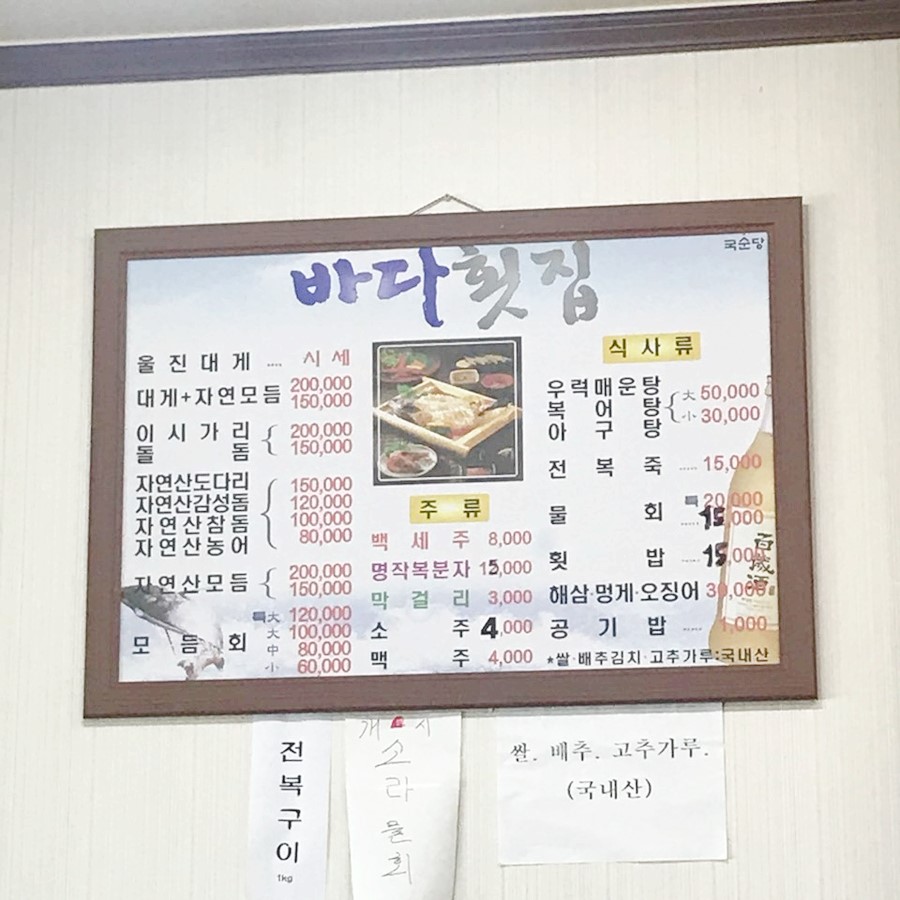 국순당
바다횟집
울진대게 .... 시세
대게+자연모듬 200,000
150,000
이시가리 200,000
돌돔 150,000
자연산도다리 150,000
자연산감성돔 120,000
자연산참돔 100,000
자연산농어 80,000
자연산모듬 200,000
150,000
모듬회 특大 120,000
大 100,000
中 80,000
小 60,000
주류
백세주 8,000
명작복분자 15,000
막걸리 3,000
소주 4,000
맥주 4,000
식사류
우럭매운탕
복어탕
아구탕
大 50,000
小 30,000
전복죽 ..... 15,000
물회 특 20,000
..... 15,000
횟밥 ..... 15,000
해삼·멍게·오징어 30,000
공기밥 ..... 1,000
*쌀·배추김치·고추가루:국내산
百歲酒
전복구이
1kg
개시
소라물회
쌀. 배추. 고추가루.
(국내산)